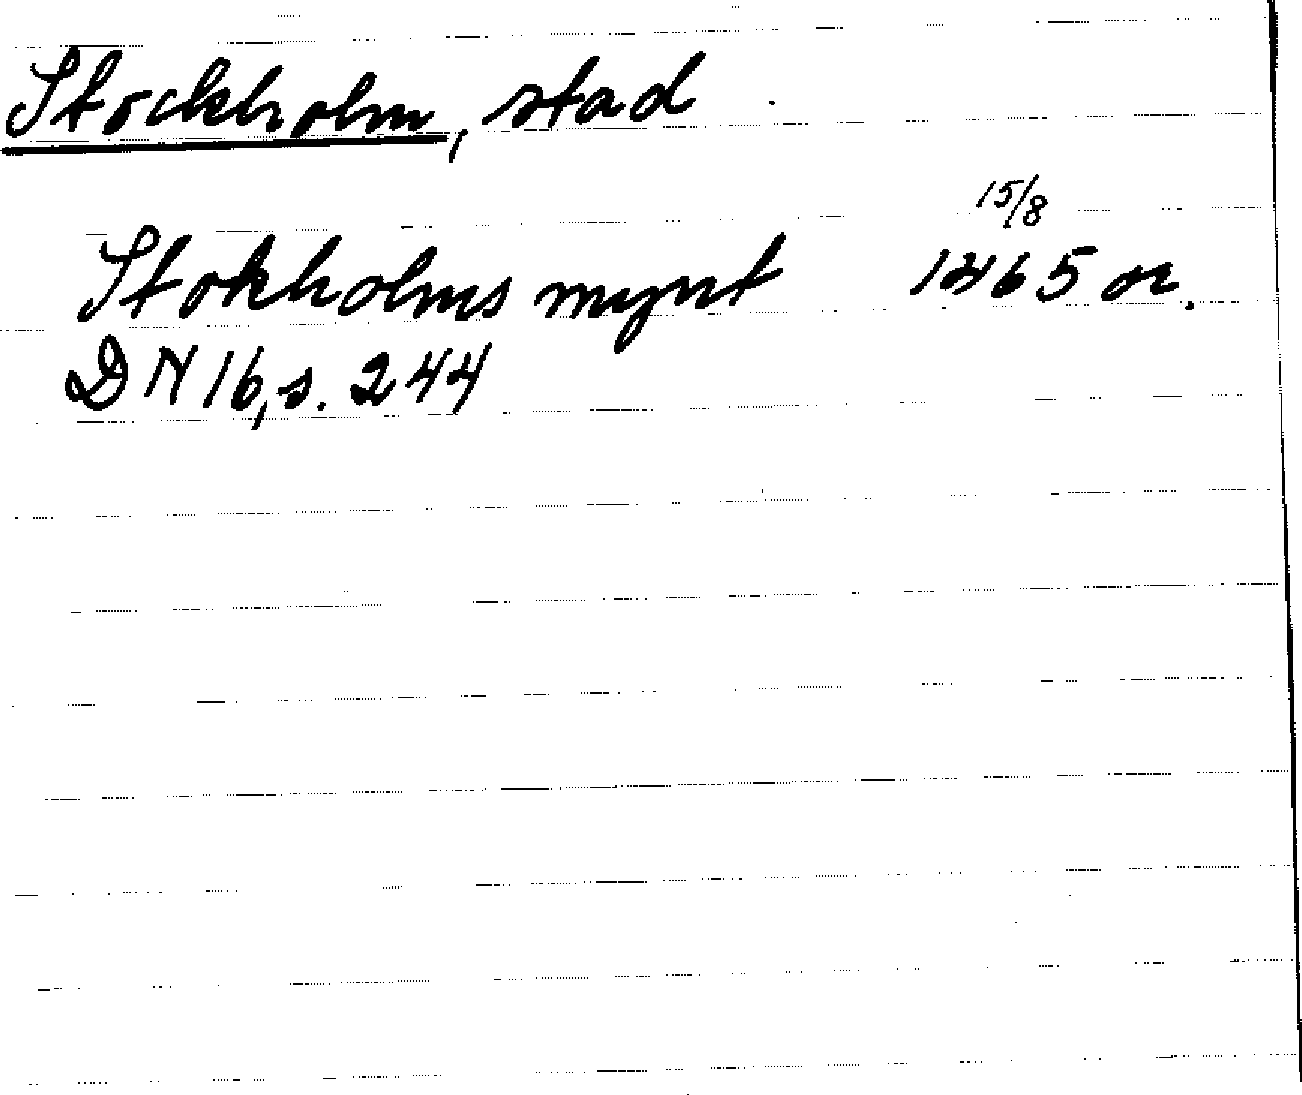 Stockholm, stad
15/8
Stokholms mynt 1465 or.
DN 16, s. 244